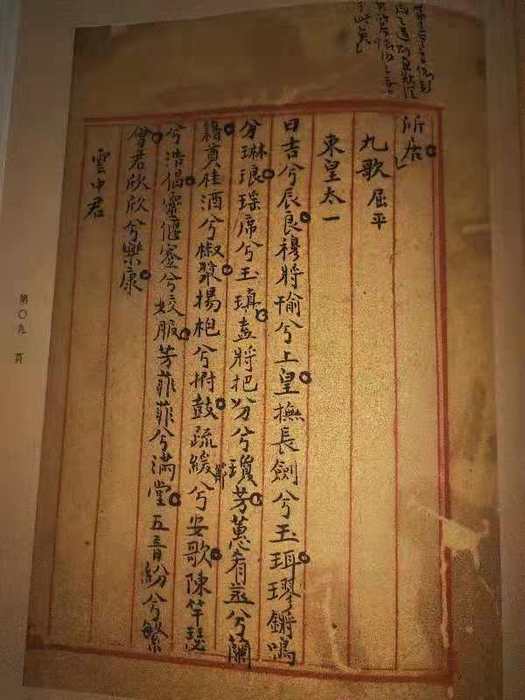 所居
九歌 屈平
東皇太一
日吉兮辰良穆將愉兮上皇撫長劍兮玉珥璆鏘鳴
兮琳琅瑤席兮玉瑱盍將把兮瓊芳蕙肴蒸兮蘭
藉奠桂酒兮椒漿揚枹兮拊鼓疏緩節兮安歌陳竽瑟
兮浩倡靈偃蹇兮姣服芳菲菲兮滿堂五音紛兮繁
會君欣欣兮樂康
雲中君
第〇九頁